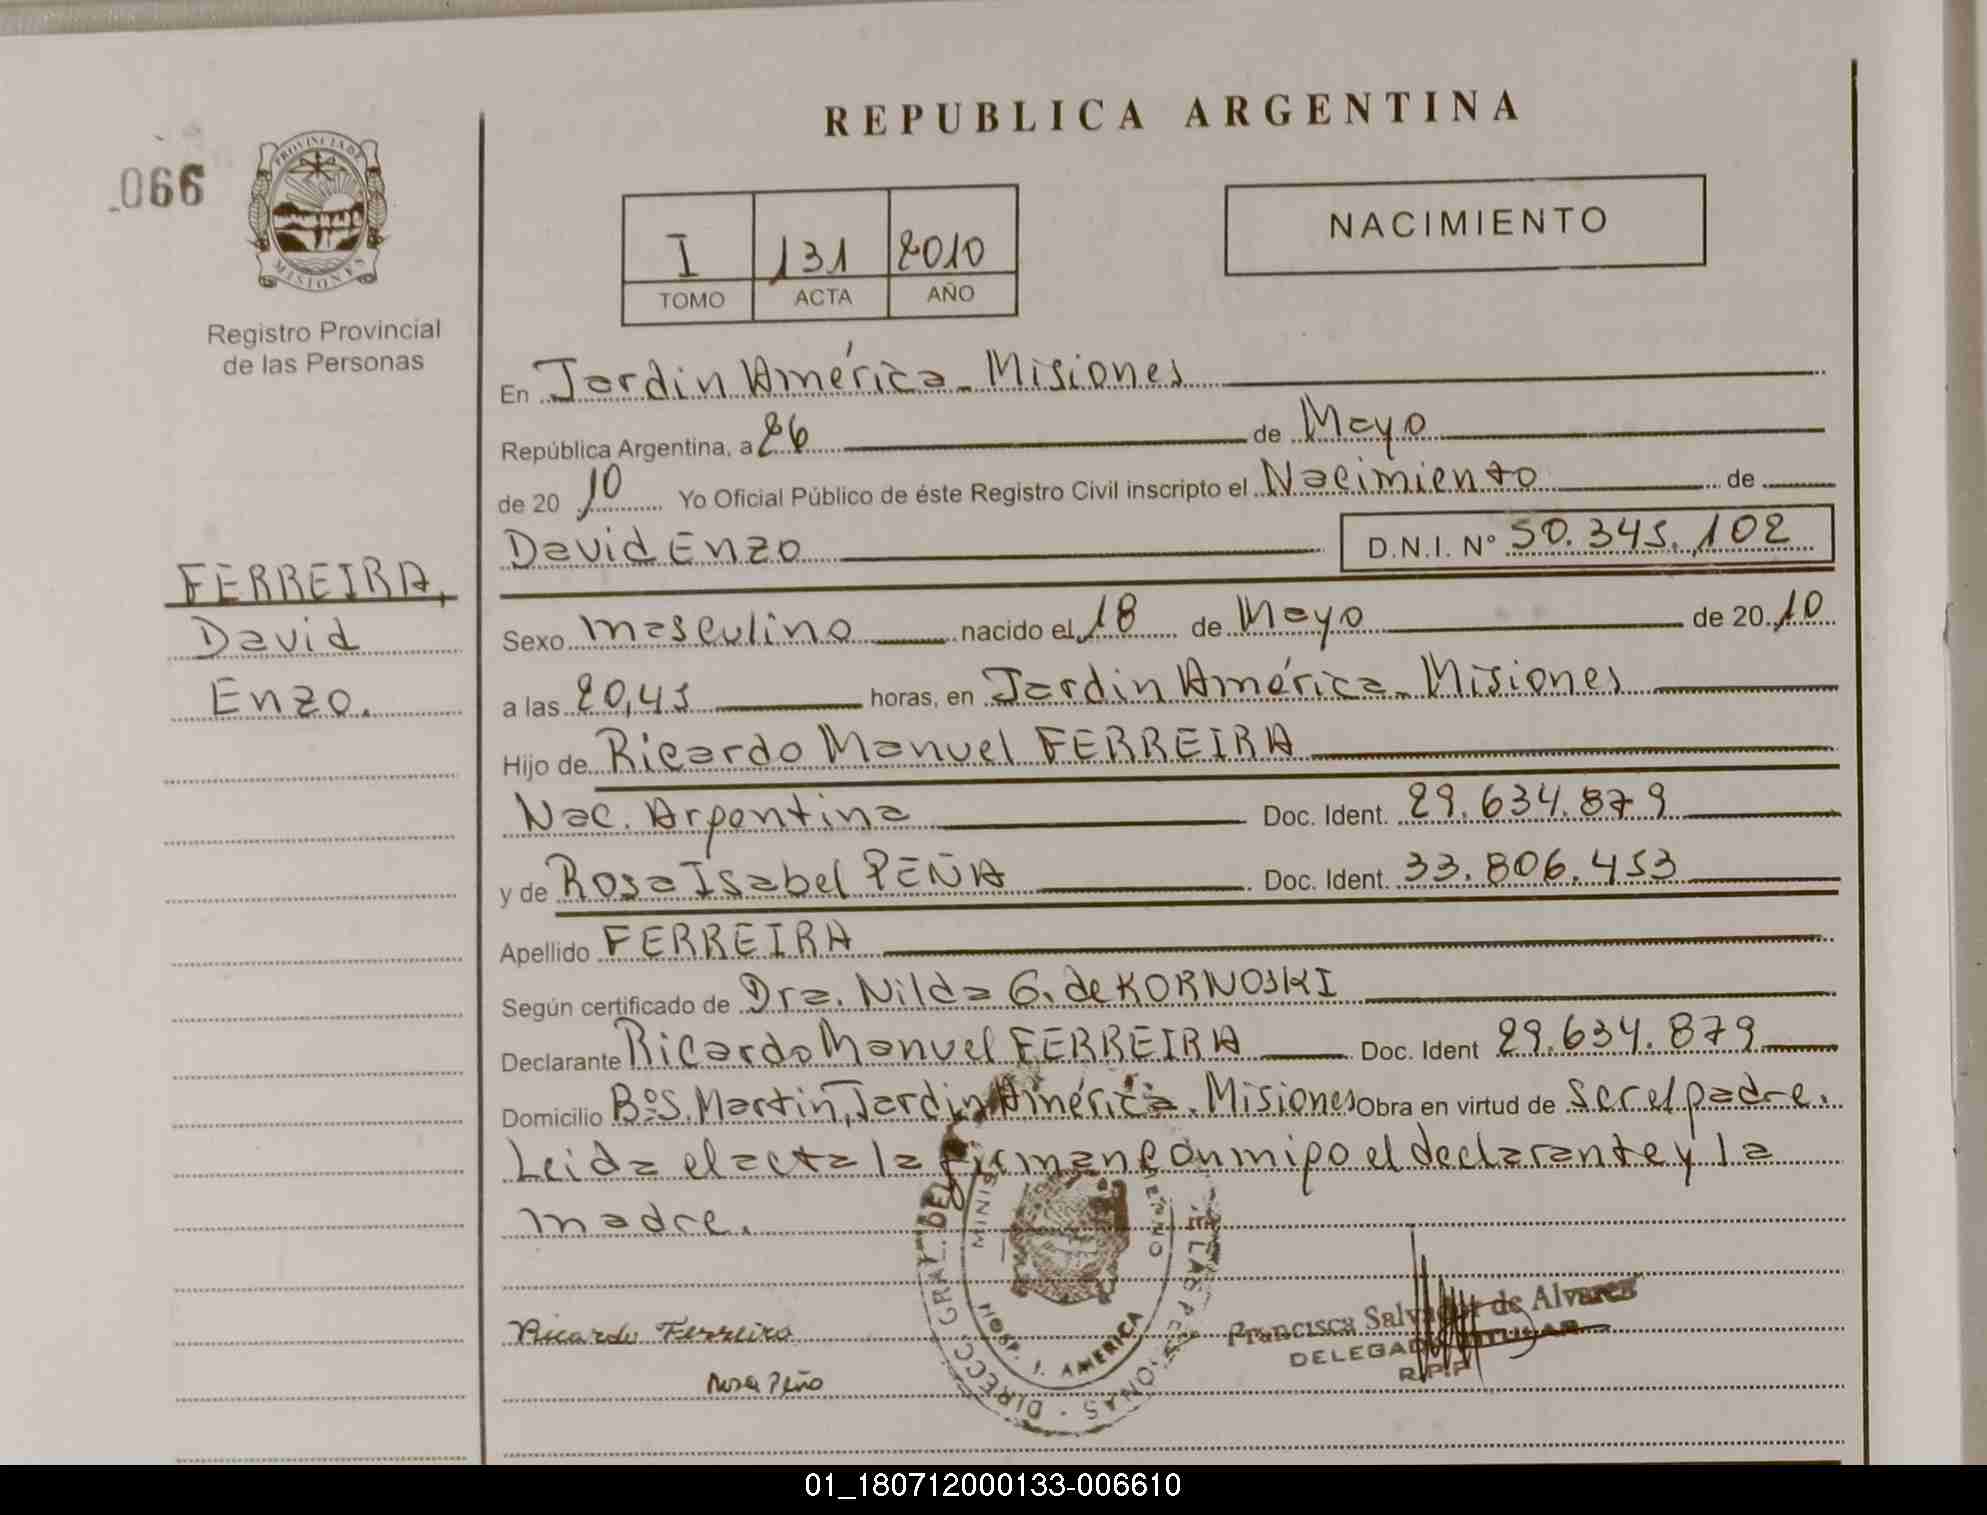 REPUBLICA ARGENTINA
066
PROVINCIA DE
MISIONES
Registro Provincial
de las Personas
I 131 2010
TOMO ACTA AÑO
NACIMIENTO
FERREIRA,
David
Enzo.
En Jardin América - Misiones
República Argentina, a 26 de Mayo
de 20 10 Yo Oficial Público de éste Registro Civil inscripto el Nacimiento de
David Enzo D.N.I. Nº 50.345.102
Sexo masculino nacido el 18 de Mayo de 20 10
a las 20,45 horas, en Jardin América - Misiones
Hijo de Ricardo Manuel FERREIRA
Nac. Argentina Doc. Ident. 29.634.879
y de Rosa Isabel PEÑA Doc. Ident. 33.806.453
Apellido FERREIRA
Según certificado de Dra. Nilda G. de KORNOSKI
Declarante Ricardo Manuel FERREIRA Doc. Ident 29.634.879
Domicilio Bº S. Martin, Jardin América. Misiones Obra en virtud de ser el padre.
Leida el acta la firman conmigo el declarante y la
madre.
Ricardo Ferreira
Rosa Peña
DIRECC. GRAL. DEL
LAS PERSONAS
HOSP. J. AMERICA
Francisca Salvador de Alvarez
DELEGADO TITULAR
R.P.P
01_180712000133-006610